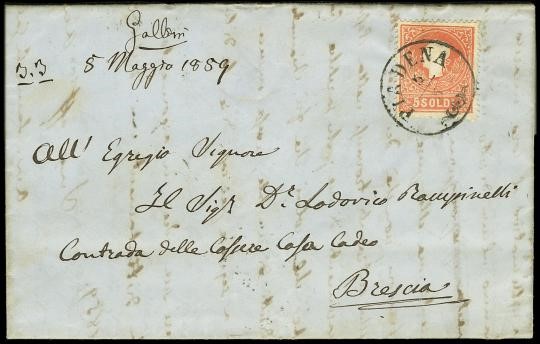 Galbini
3.3
5 Maggio 1859
PIADENA
5 SOLDI
All' Egregio Signore
Il Sigr Dr Lodovico Rampinelli
Contrada delle Cossere Casa Cadeo
Brescia